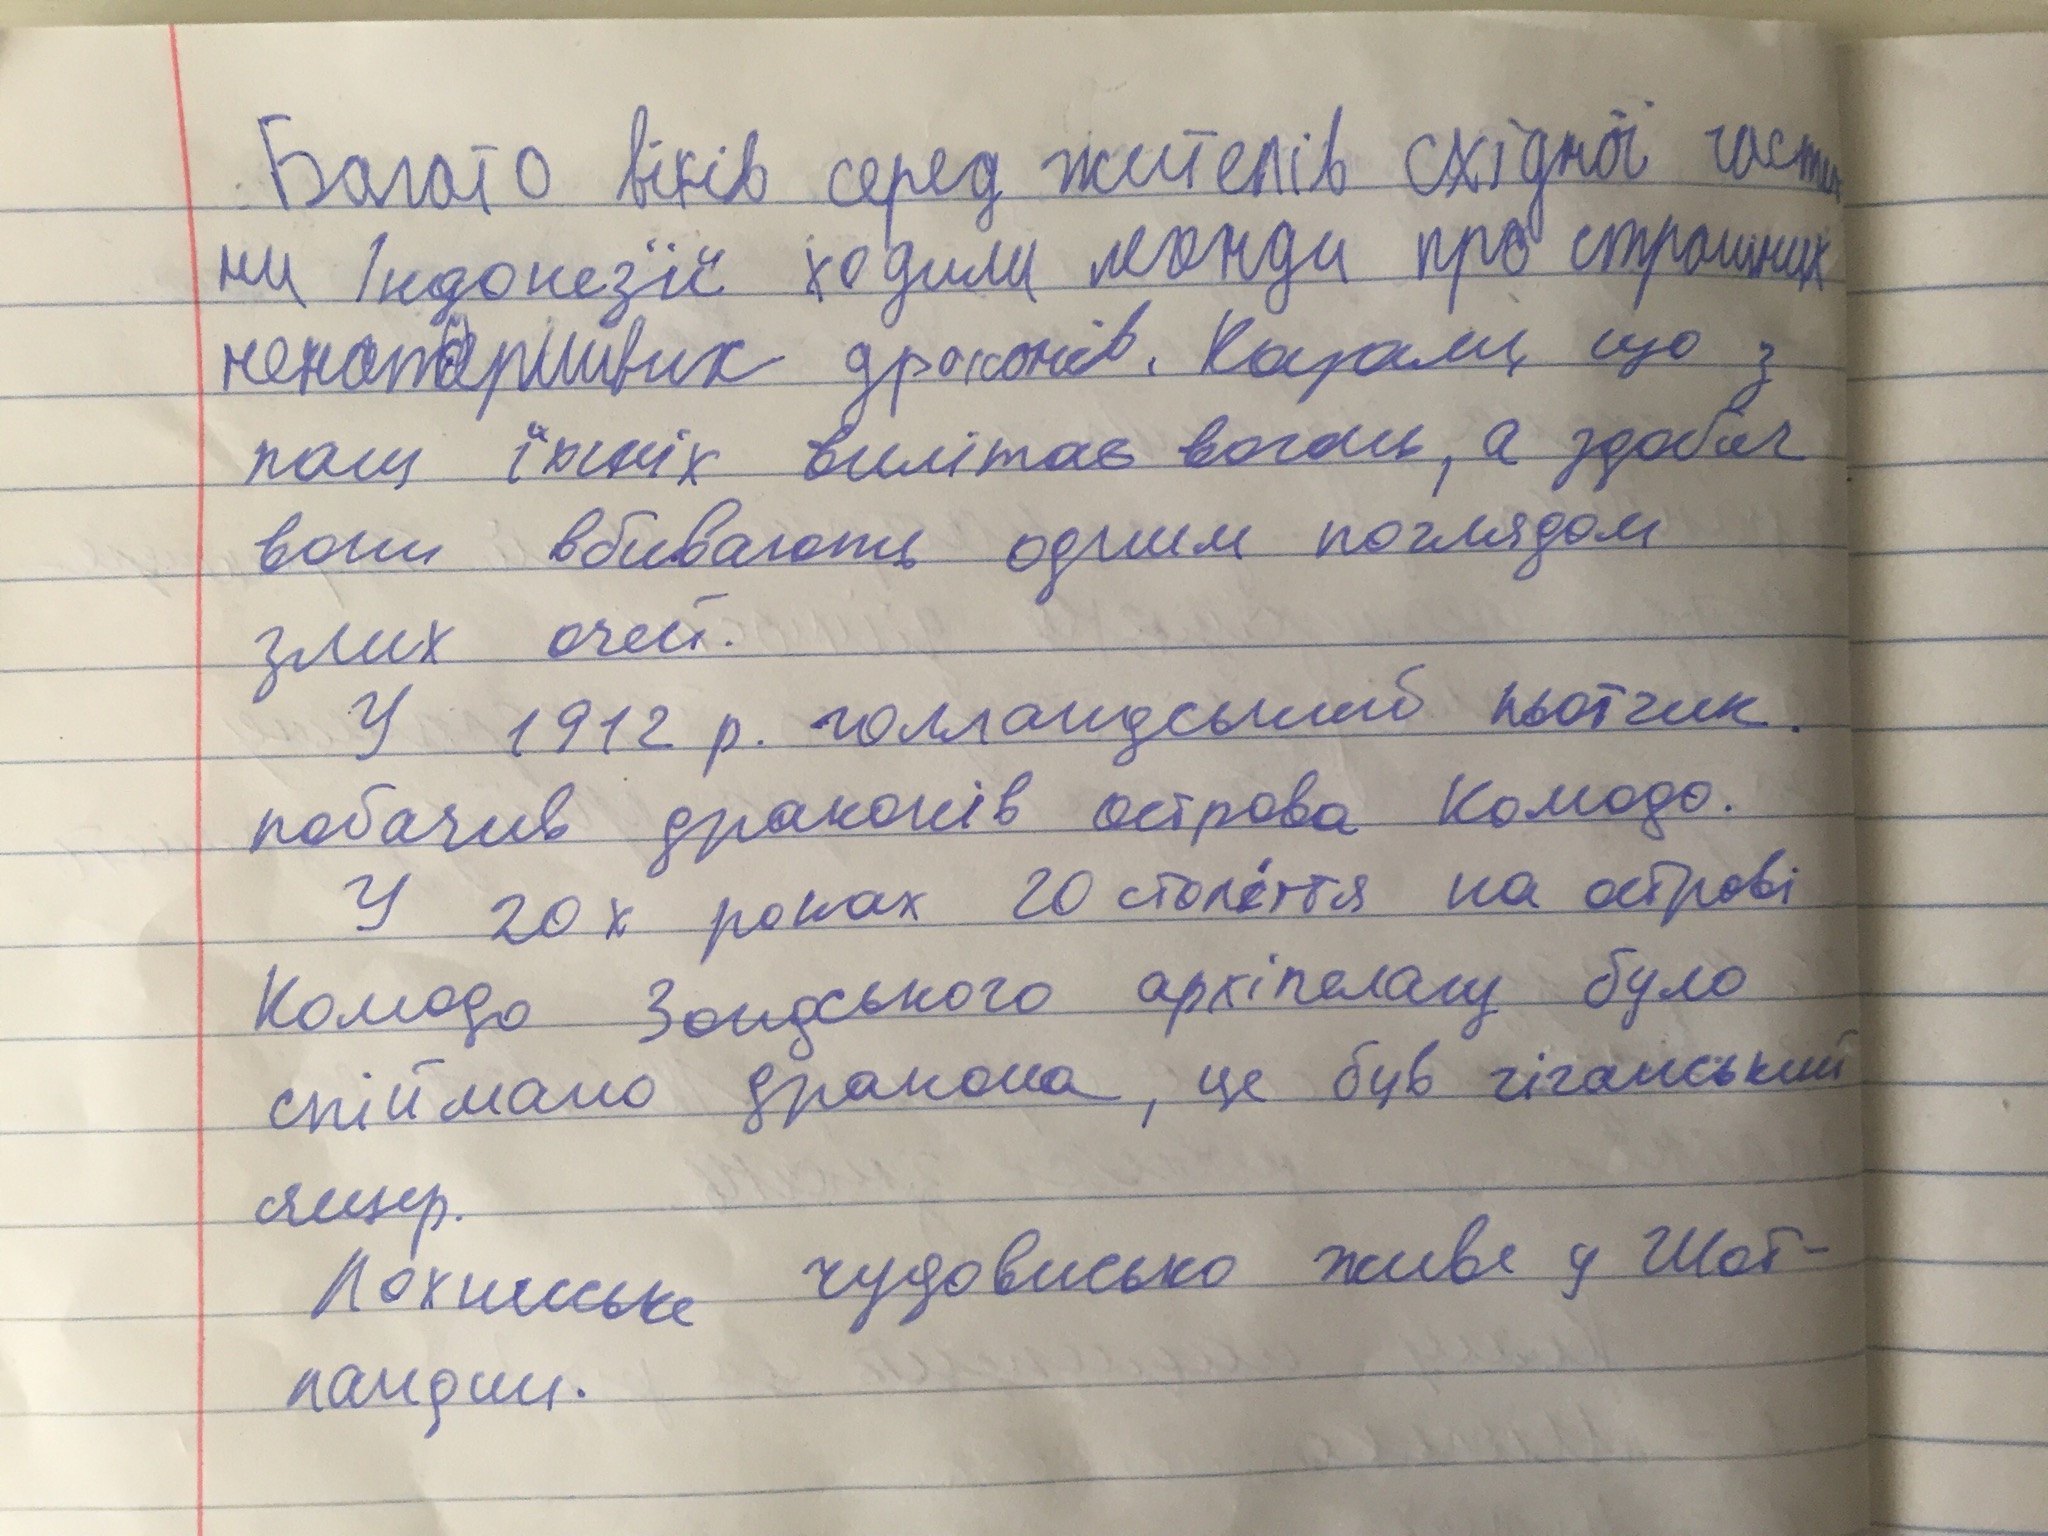 Багато віків серед жителів східної части
ни Індонезії ходили легенди про страшних
ненатарливих драконів. Казали, що з
пащ їхніх вилітає вогонь, а здобич
вони вбивають одним поглядом
злих очей.
У 1912 р. голландський льотчик
побачив драконів острова Комодо.
У 20х роках 20 століття на острові
Комодо Зондського архіпелагу було
спіймано дракона, це був гіганський
ящур.
Лохнеське чудовисько живе у Шот-
ландии.